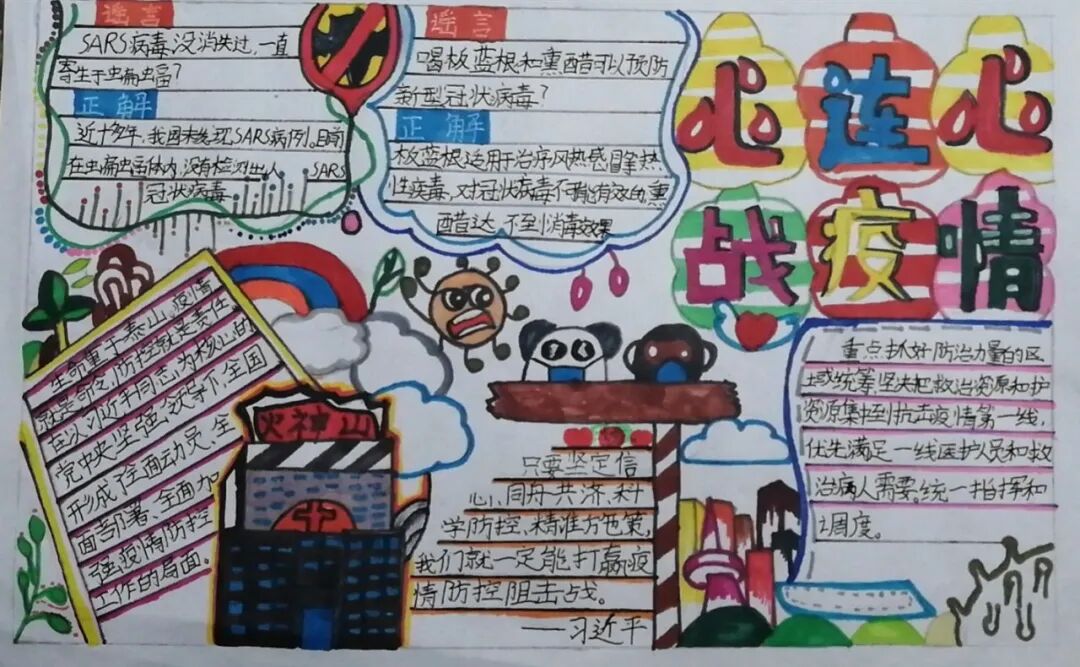 谣言
SARS病毒没消失过,一直
寄生于蝙蝠?
正解
近十多年,我国未发现SARS病例,目前
在蝙蝠体内,没有检测出人 SARS
冠状病毒
谣言
喝板蓝根和熏醋可以预防
新型冠状病毒?
正解
板蓝根适用于治疗风热感冒等热
性疾毒,对冠状病毒不能有效的,熏
醋达不到消毒效果
心连心
战疫情
生命重于泰山,疫情
就是命令,防控就是责任。
在以习近平同志为核心的
党中央坚强领导下,全国
形成了全面动员、全
面部署、全面加
强疫情防控
工作的局面。
火神山
只要坚定信
心、同舟共济、科
学防控、精准方施策,
我们就一定能打赢疫
情防控阻击战。
——习近平
重点抓好防治力量的区
域统筹坚决把救治资源和护
资源集中到抗击疫情第一线,
优先满足一线医护人员和救
治病人需要。统一指挥和
调度。